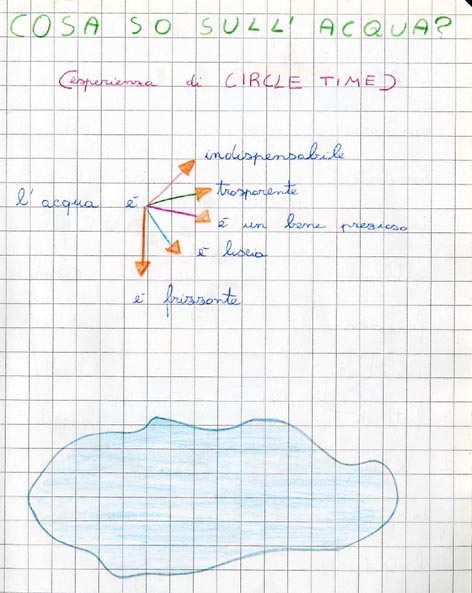 COSA SO SULL' ACQUA?
(esperienza di CIRCLE TIME)
indispensabile
l' acqua é
trasparente
é un bene prezioso
é liscia
é frizzante